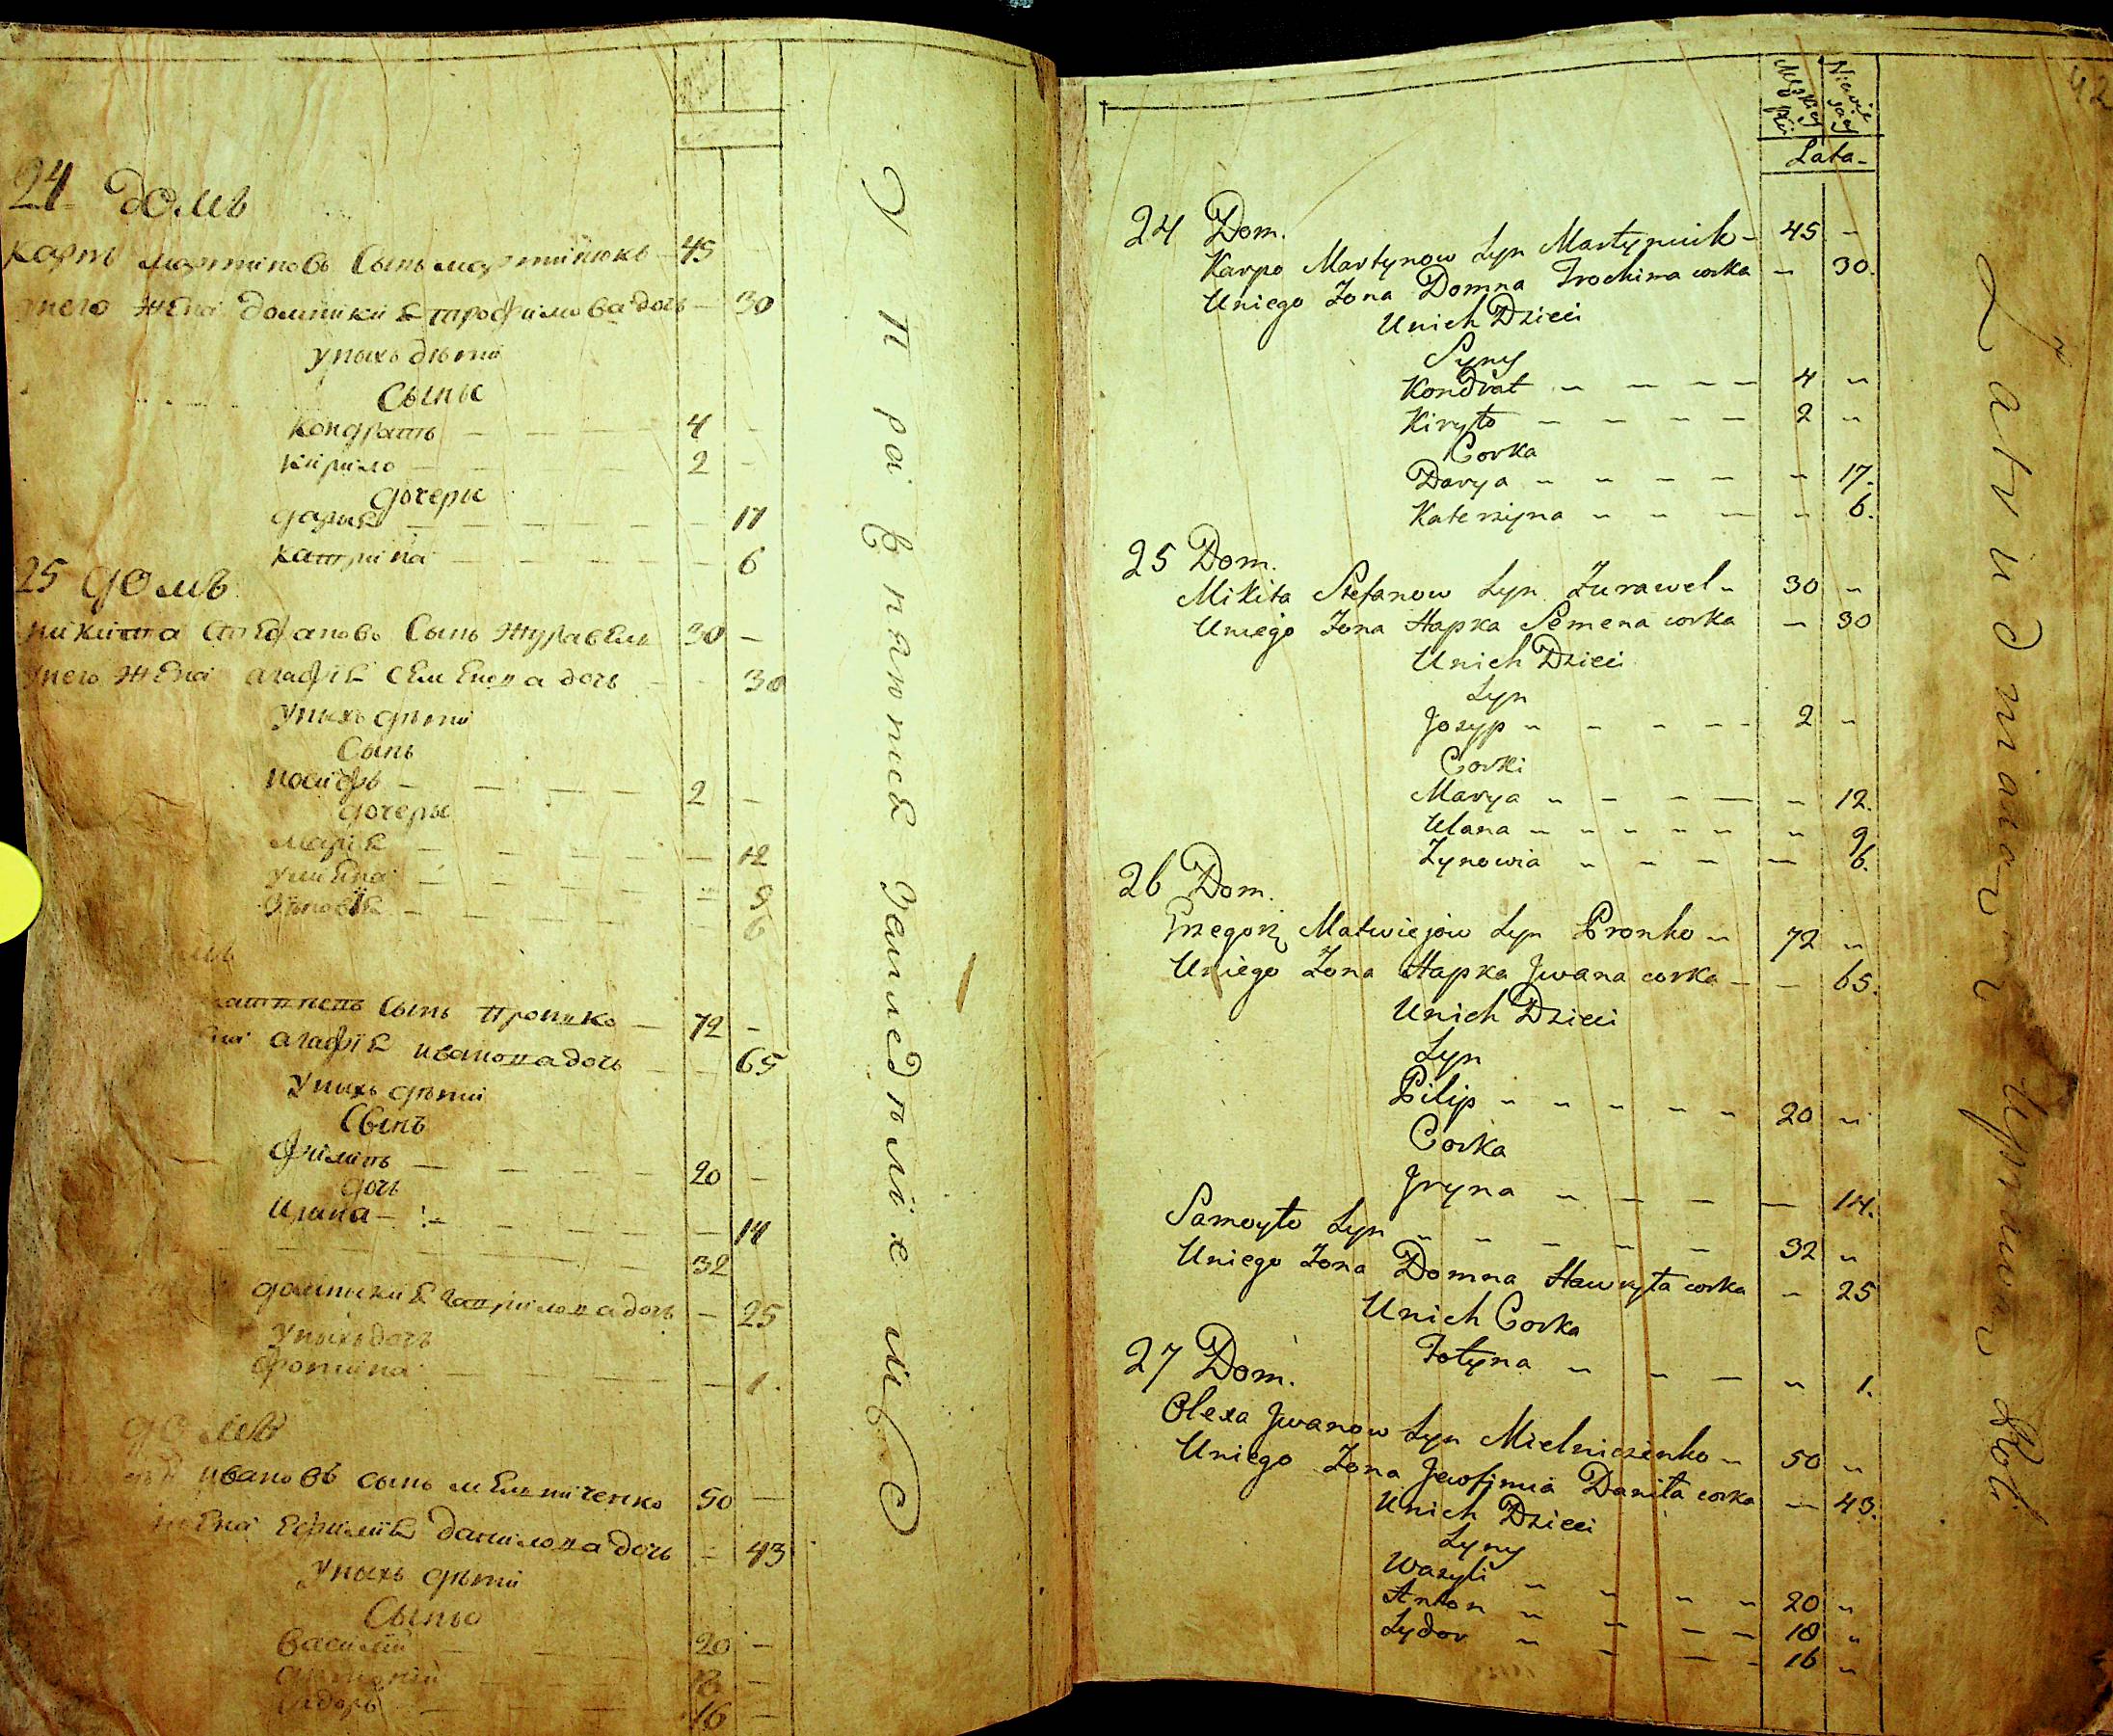 24 домъ
карпъ мартиновъ сынъ мартинюкъ — 45 —
у него жена домникия трофимова дочь — 30
у нихъ дѣти
Сыны
кондратъ — 4 —
кирило — 2 —
дочеры
дария — 17
катрина — 6
25 домъ
никита стефановъ сынъ журавель 30 —
у него жена агафия семенова дочь — 30
у нихъ дѣти
Сынъ
иосифъ — 2 —
дочеры
мария — 12
улияна — 9
зѣновия — 6
сынъ пронко — 72 —
агафия иванова дочь — 65
у нихъ дѣти
Сынъ
филипъ — 20 —
дочь
ирина — 14
32
домникия гаврилова дочь — 25
у нихъ дочь
фотина — 1.
домъ
ивановъ сынъ мелниченко 50 —
жена ефимия данилова дочь — 43
у нихъ дѣти
Сыны
василий 20 —
18 —
сидоръ 16 —
управляются землéдѣлие мъ
42
Męzkiey płci
Niewie sciey
Lata-
24 Dom.
Karpo Martynow Syn Martyniuk - 45 -
Uniego Zona Domna Trochima corka - 30.
Unich Dzieci
Syny
Kondrat - 4 -
Kiryło - 2 -
Corka
Darya - 17.
Katerzyna - 6.
25 Dom.
Mikita Stefanow Syn Zurawel - 30 -
Uniego Zona Hapka Semena corka - 30
Unich Dzieci
Syn
Jozyp - 2 -
Corki
Marya - 12.
Ulana - 9.
Zynowia - 6.
26 Dom.
Grzegorz Matwiejow Syn Pronko - 72 -
Uniego Zona Hapka Jwana corka - 65.
Unich Dzieci
Syn
Pilip - 20 -
Corka
Jryna - 14.
Samoyło Syn - 32 -
Uniego Zona Domna Hawryła corka - 25
Unich Corka
Fotyna - 1.
27 Dom.
Olexa Jwanow Syn Mielniczenko - 50 -
Uniego Zona Jewfimia Daniła corka - 43.
Unich Dzieci
Syny
Wasyli - 20 -
Anton - 18 -
Sydor - 16 -
Zatrudniaią Uprawą Roli